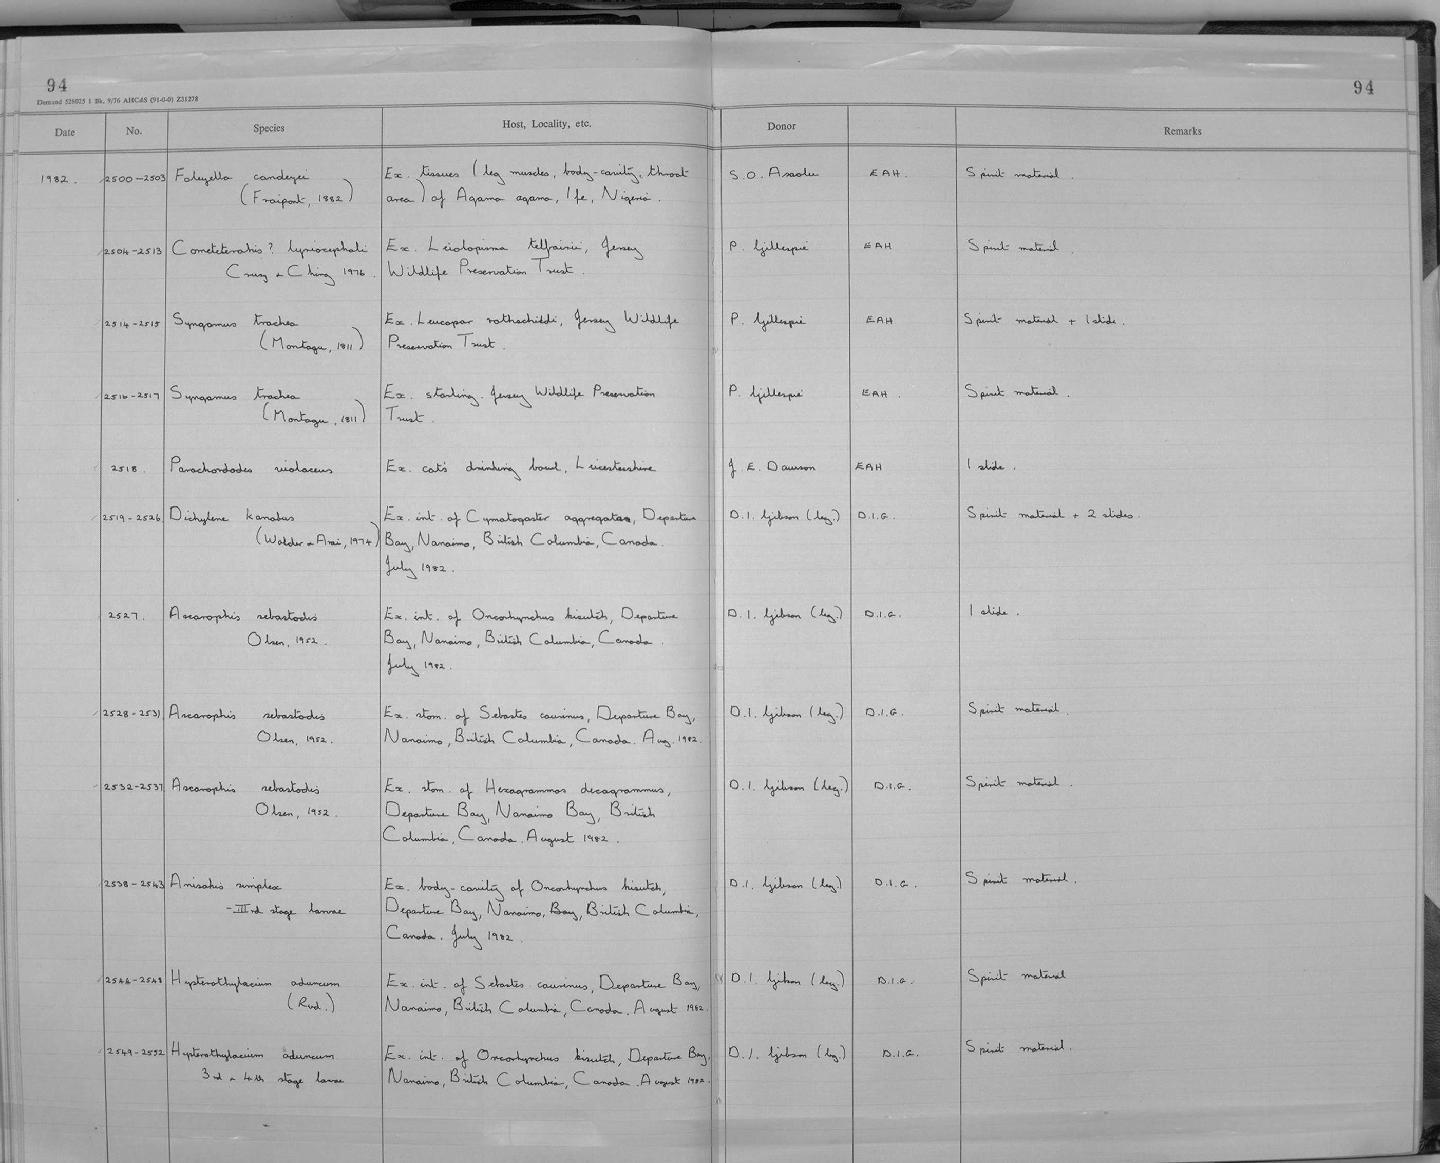 94
94
Demand 526025 1 Bk. 9/76 AHCdS (91-0-0) Z31278
Date No. Species Host, Locality, etc. Donor Remarks
1982. 2500-2503 Foleyella candezei Ex. tissues (leg muscles, body-cavity, throat S.O. Asaolu EAH. Spirit material.
(Fraipont, 1882) area) of Agama agama, Ife, Nigeria.
2504-2513 lyriocephali Ex. Leiolopisma telfairii, Jersey P. Gillespie EAH Spirit material.
Cruz & Ching 1976. Wildlife Preservation Trust.
2514-2515 Syngamus trachea Ex. Leucopsar rothschildi, Jersey Wildlife P. Gillespie EAH Spirit material + 1 slide.
(Montagu, 1811) Preservation Trust.
2516-2517 Syngamus trachea Ex. starling. Jersey Wildlife Preservation P. Gillespie EAH. Spirit material.
(Montagu, 1811) Trust.
2518. Parachordodes violaceus Ex. cat's drinking bowl, Leicestershire J. E. Dawson EAH 1 slide.
2519-2526 Dichelyne Ex. int. of Cymatogaster aggregata, Departure D.I. Gibson (leg.) D.I.G. Spirit material + 2 slides.
& Arai, 1974) Bay, Nanaimo, British Columbia, Canada.
July 1982.
2527. Ascarophis sebastodis Ex. int. of Oncorhynchus kisutch, Departure D.I. Gibson (leg.) D.I.G. 1 slide.
Olsen, 1952. Bay, Nanaimo, British Columbia, Canada.
July 1982.
2528-2531 Ascarophis sebastodis Ex. stom. of Sebastes caurinus, Departure Bay, D.I. Gibson (leg.) D.I.G. Spirit material.
Olsen, 1952. Nanaimo, British Columbia, Canada. Aug. 1982.
2532-2537 Ascarophis sebastodis Ex. stom. of Hexagrammos decagrammus, D.I. Gibson (leg.) D.I.G. Spirit material.
Olsen, 1952. Departure Bay, Nanaimo Bay, British
Columbia, Canada. August 1982.
2538-2543 Anisakis simplex Ex. body-cavity of Oncorhynchus kisutch, D.I. Gibson (leg.) D.I.G. Spirit material.
-IIIrd stage larvae Departure Bay, Nanaimo, Bay, British Columbia,
Canada. July 1982.
2544-2548 Hysterothylacium aduncum Ex. int. of Sebastes caurinus, Departure Bay, D.I. Gibson (leg.) D.I.G. Spirit material
(Rud.) Nanaimo, British Columbia, Canada. August 1982.
2549-2552 Hysterothylacium aduncum Ex. int. of Oncorhynchus kisutch, Departure Bay, D.I. Gibson (leg.) D.I.G. Spirit material.
3rd & 4th stage larvae Nanaimo, British Columbia, Canada. August 1982.